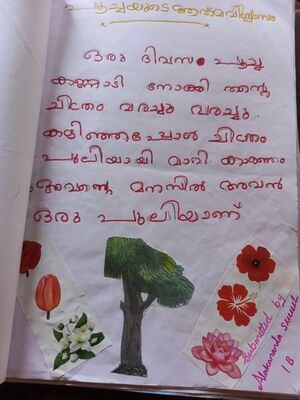 പൂച്ചയുടെ ആത്മവിശ്വാസം
ഒരു ദിവസം പൂച്ച
കണ്ണാടി നോക്കി തന്റെ
ചിത്രം വരച്ചു വരച്ചു
കഴിഞ്ഞപ്പോൾ ചിത്രം
പുലിയായി മാറി കാരണം
അവന്റെ മനസിൽ അവൻ
ഒരു പുലിയാണ്
Submitted by
1 B